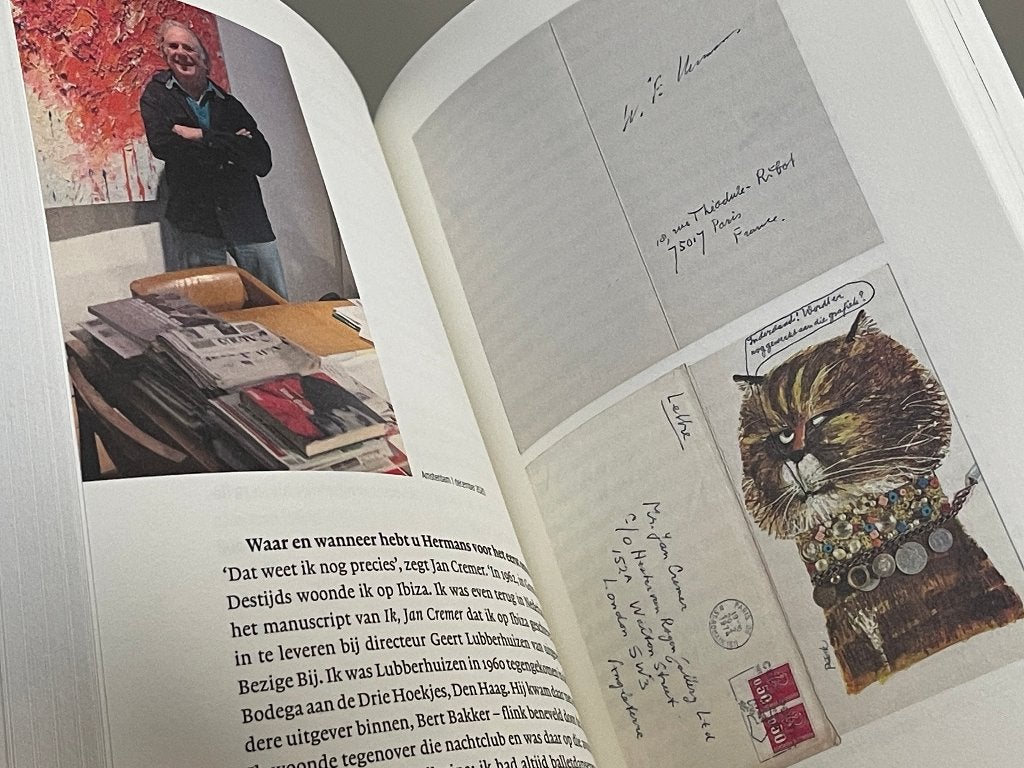 Amsterdam | december 2020
Waar en wanneer hebt u Hermans voor het eerst
‘Dat weet ik nog precies’, zegt Jan Cremer. ‘In 1962, in
Destijds woonde ik op Ibiza. Ik was even terug in
het manuscript van Ik, Jan Cremer dat ik op Ibiza
in te leveren bij directeur Geert Lubberhuizen van
Bezige Bij. Ik was Lubberhuizen in 1960 tegengekomen
Bodega aan de Drie Hoekjes, Den Haag. Hij kwam daar
dere uitgever binnen, Bert Bakker – flink beneveld door
woonde tegenover die nachtclub en was daar op
ik had altijd
W. F. Hermans
18, rue Théodule-Ribot
75017 Paris
France.
Inderdaad! Wordt er
nog gewerkt aan die grafiek?
Lettre
Mr. Jan Cremer
c/o Hester van Royen Gallery Ltd
152A Walton Street
London SW3
Angleterre
PARIS
0,50
0,50